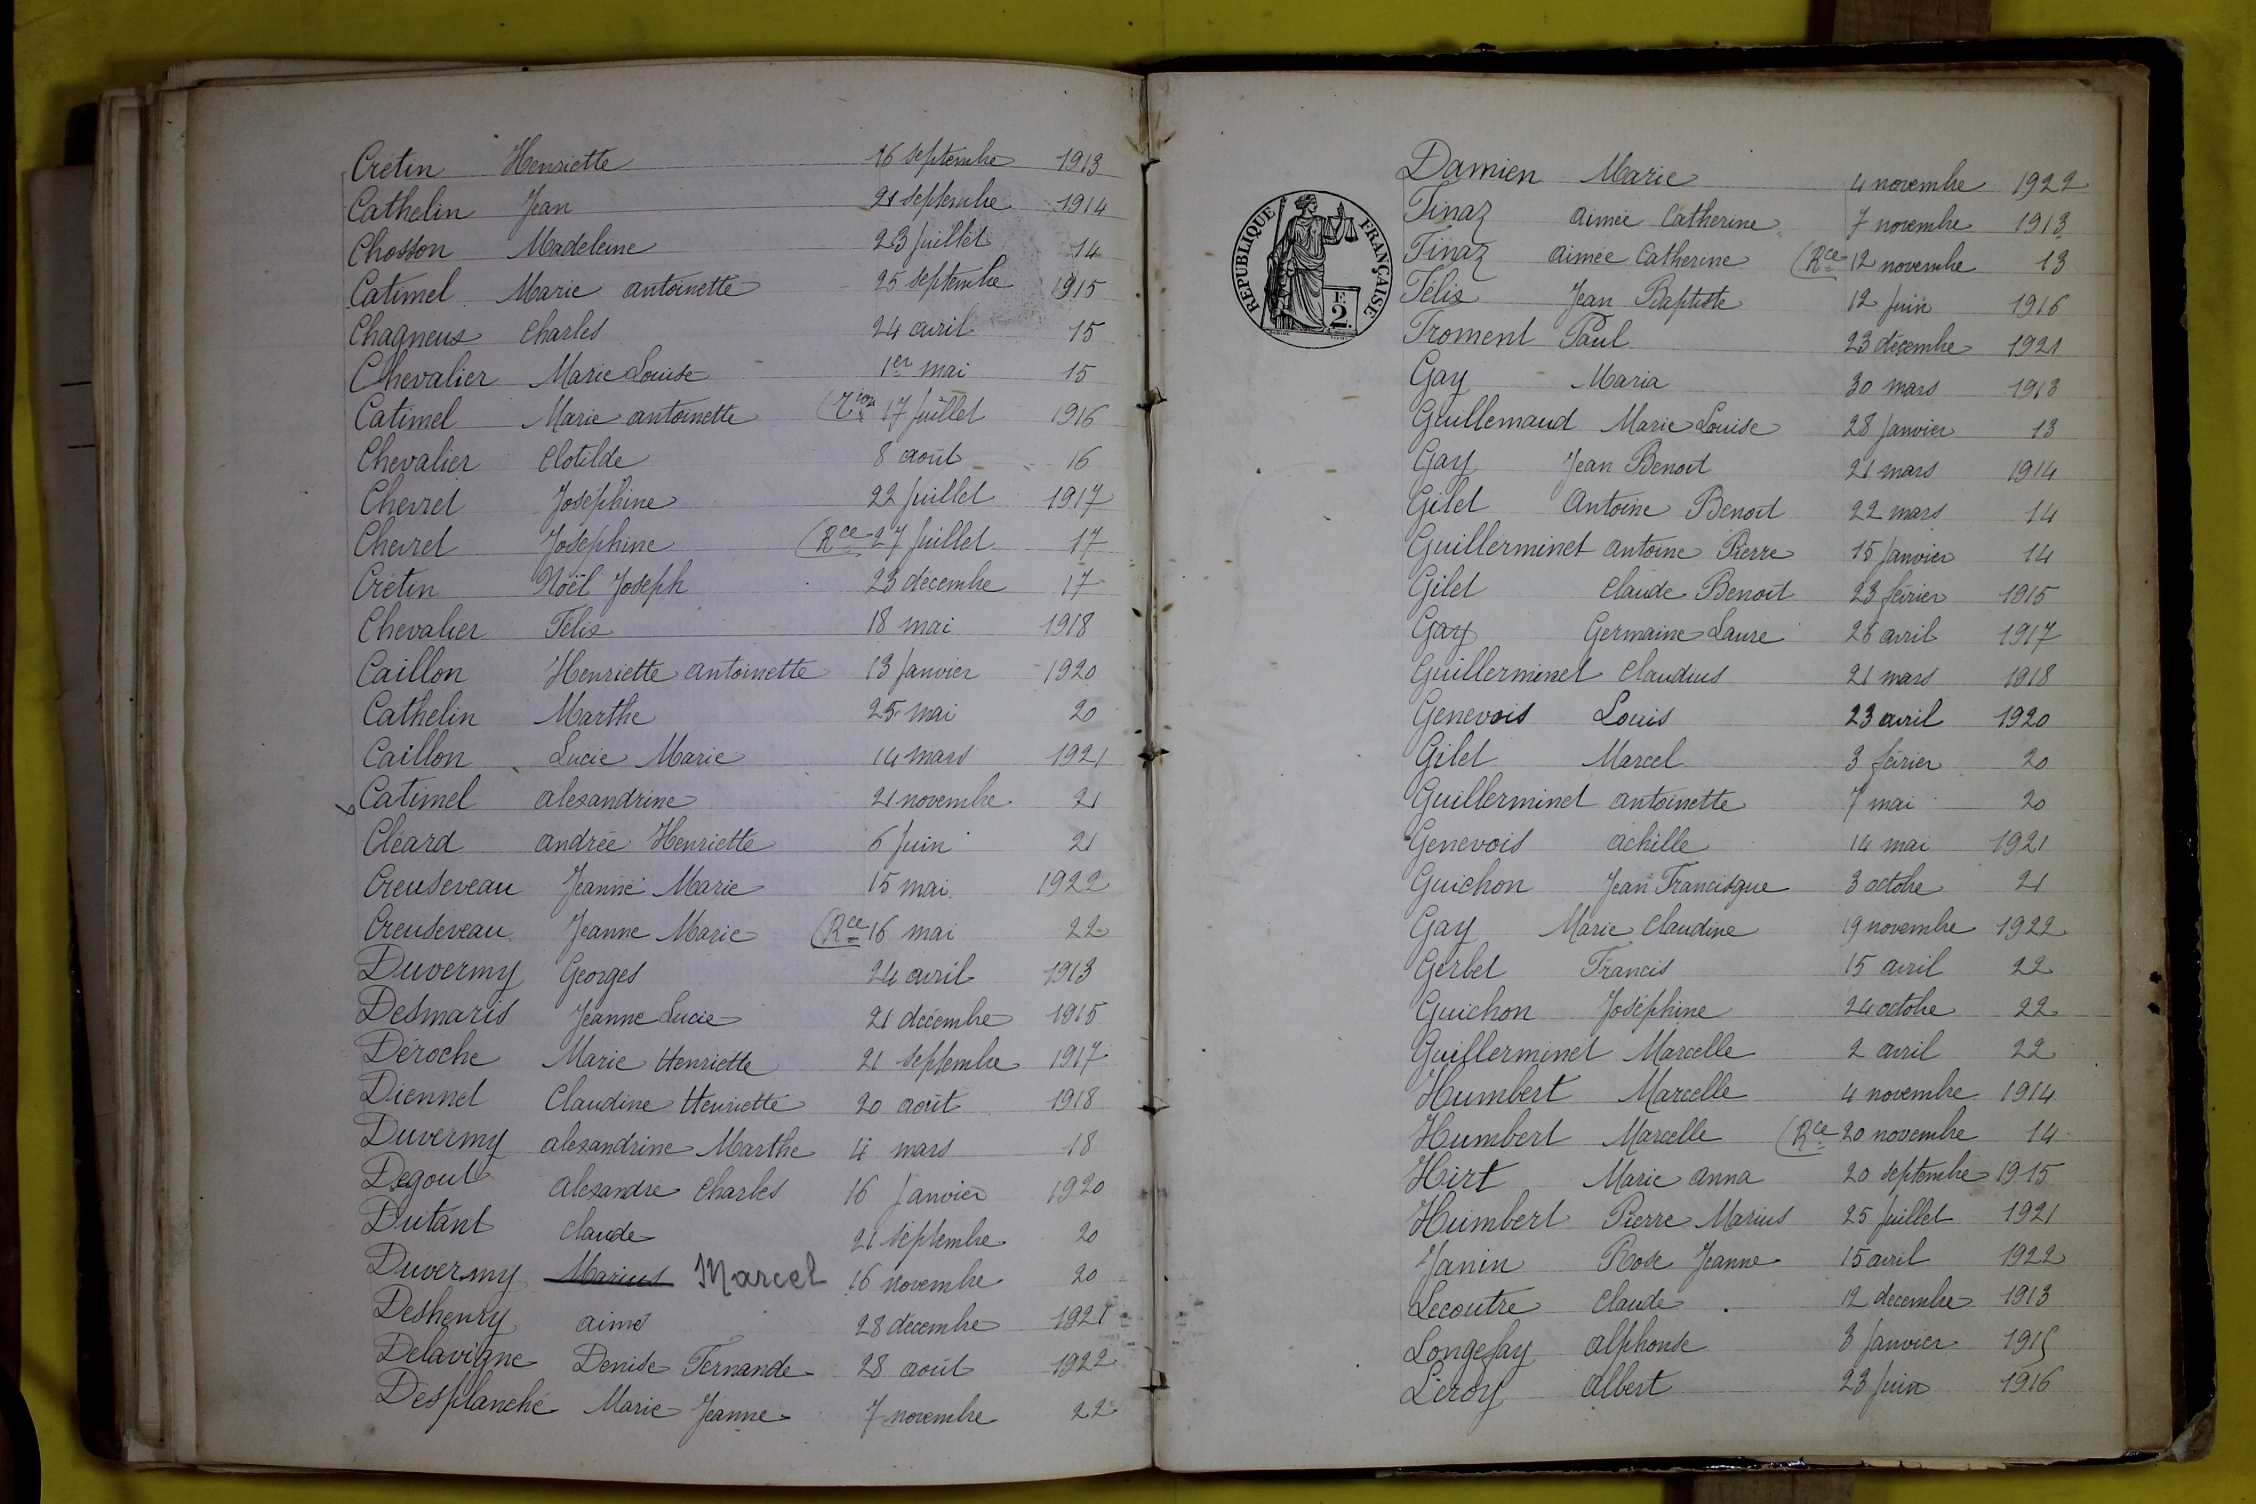 Crétin Henriette 16 septembre 1913
Cathelin Jean 21 septembre 1914
Chosson Madeleine 23 juillet 14
Catimel Marie antoinette 25 septembre 1915
Chagneux Charles 24 avril 15
Chevalier Marie Louise 1er mai 15
Catimel Marie antoinette 17 juillet 1916
Chevalier Clotilde 8 août 16
Chevret Joséphine 22 juillet 1917
Chevret Joséphine (Rce 27 juillet 17
Crétin Noël Joseph 23 décembre 17
Chevalier Félix 18 mai 1918
Caillon Henriette antoinette 13 janvier 1920
Cathelin Marthe 25 mai 20
Caillon Lucie Marie 14 mars 1921
Catimel alexandrine 21 novembre 21
Cléard andrée Henriette 6 juin 21
Creuseveau Jeanne Marie 15 mai 1922
Creuseveau Jeanne Marie (Rce 16 mai 22
Duvermy Georges 24 avril 1913
Desmaris Jeanne Lucie 21 décembre 1915
Déroche Marie Henriette 21 septembre 1917
Diennet Claudine Henriette 20 août 1918
Duvermy alexandrine Marthe 4 mars 18
Degout alexandre Charles 16 janvier 1920
Dutant Claude 21 septembre 20
Duvermy Marius Marcel 16 novembre 20
Deshenry aimé 28 décembre 1921
Delavigne Denise Fernande 28 août 1922
Desplanche Marie Jeanne 7 novembre 22
RÉPUBLIQUE FRANÇAISE
2F.
Damien Marie 4 novembre 1922
Finaz aimée Catherine 7 novembre 1913
Finaz aimée Catherine (Rce 12 novembre 13
Félix Jean Baptiste 12 juin 1916
Froment Paul 23 décembre 1921
Gay Maria 30 mars 1913
Guillemaud Marie Louise 28 janvier 13
Gay Jean Benoit 21 mars 1914
Gilet Antoine Benoit 22 mars 14
Guillerminet antoine Pierre 15 janvier 14
Gilet Claude Benoit 23 février 1915
Gay Germaine Laure 26 avril 1917
Guillerminet Claudius 21 mars 1918
Genevois Louis 23 avril 1920
Gilet Marcel 3 février 20
Guillerminet antoinette 7 mai 20
Genevois achille 14 mai 1921
Guichon Jean Francisque 3 octobre 21
Gay Marie Claudine 19 novembre 1922
Gerbet Francis 15 avril 22
Guichon Joséphine 24 octobre 22
Guillerminet Marcelle 2 avril 22
Humbert Marcelle 4 novembre 1914
Humbert Marcelle (Rce 20 novembre 14
Hirt Marie anna 20 septembre 1915
Humbert Pierre Marius 25 juillet 1921
Janin Rose Jeanne 15 avril 1922
Lecoutre Claude 12 décembre 1913
Longefay alphonse 3 janvier 1915
Leroy Albert 23 juin 1916